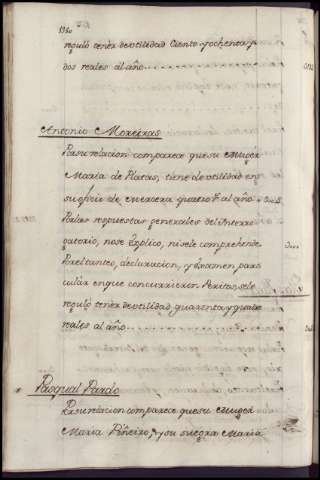 reguló tener de utilidad Ciento y ochenta y
dos reales al año
Antonio Moreiras
Por su relacion comparece que su Muger
Maria de Platas, tiene de utilidad en
su ofiz.o de quatro r.s al año
Por las respuestas generales del Interro
gatorio, no se explico, ni se le comprehende
Por el tanteo, declaracion, y exâmen parti
cular en que concurrieron Peritos, se le
reguló tener de utilidad quarenta y quatro
reales al año
Pasqual Pardo
Por su relacion comparece que su Muger
Maria Piñeiro, y su suegra Maria